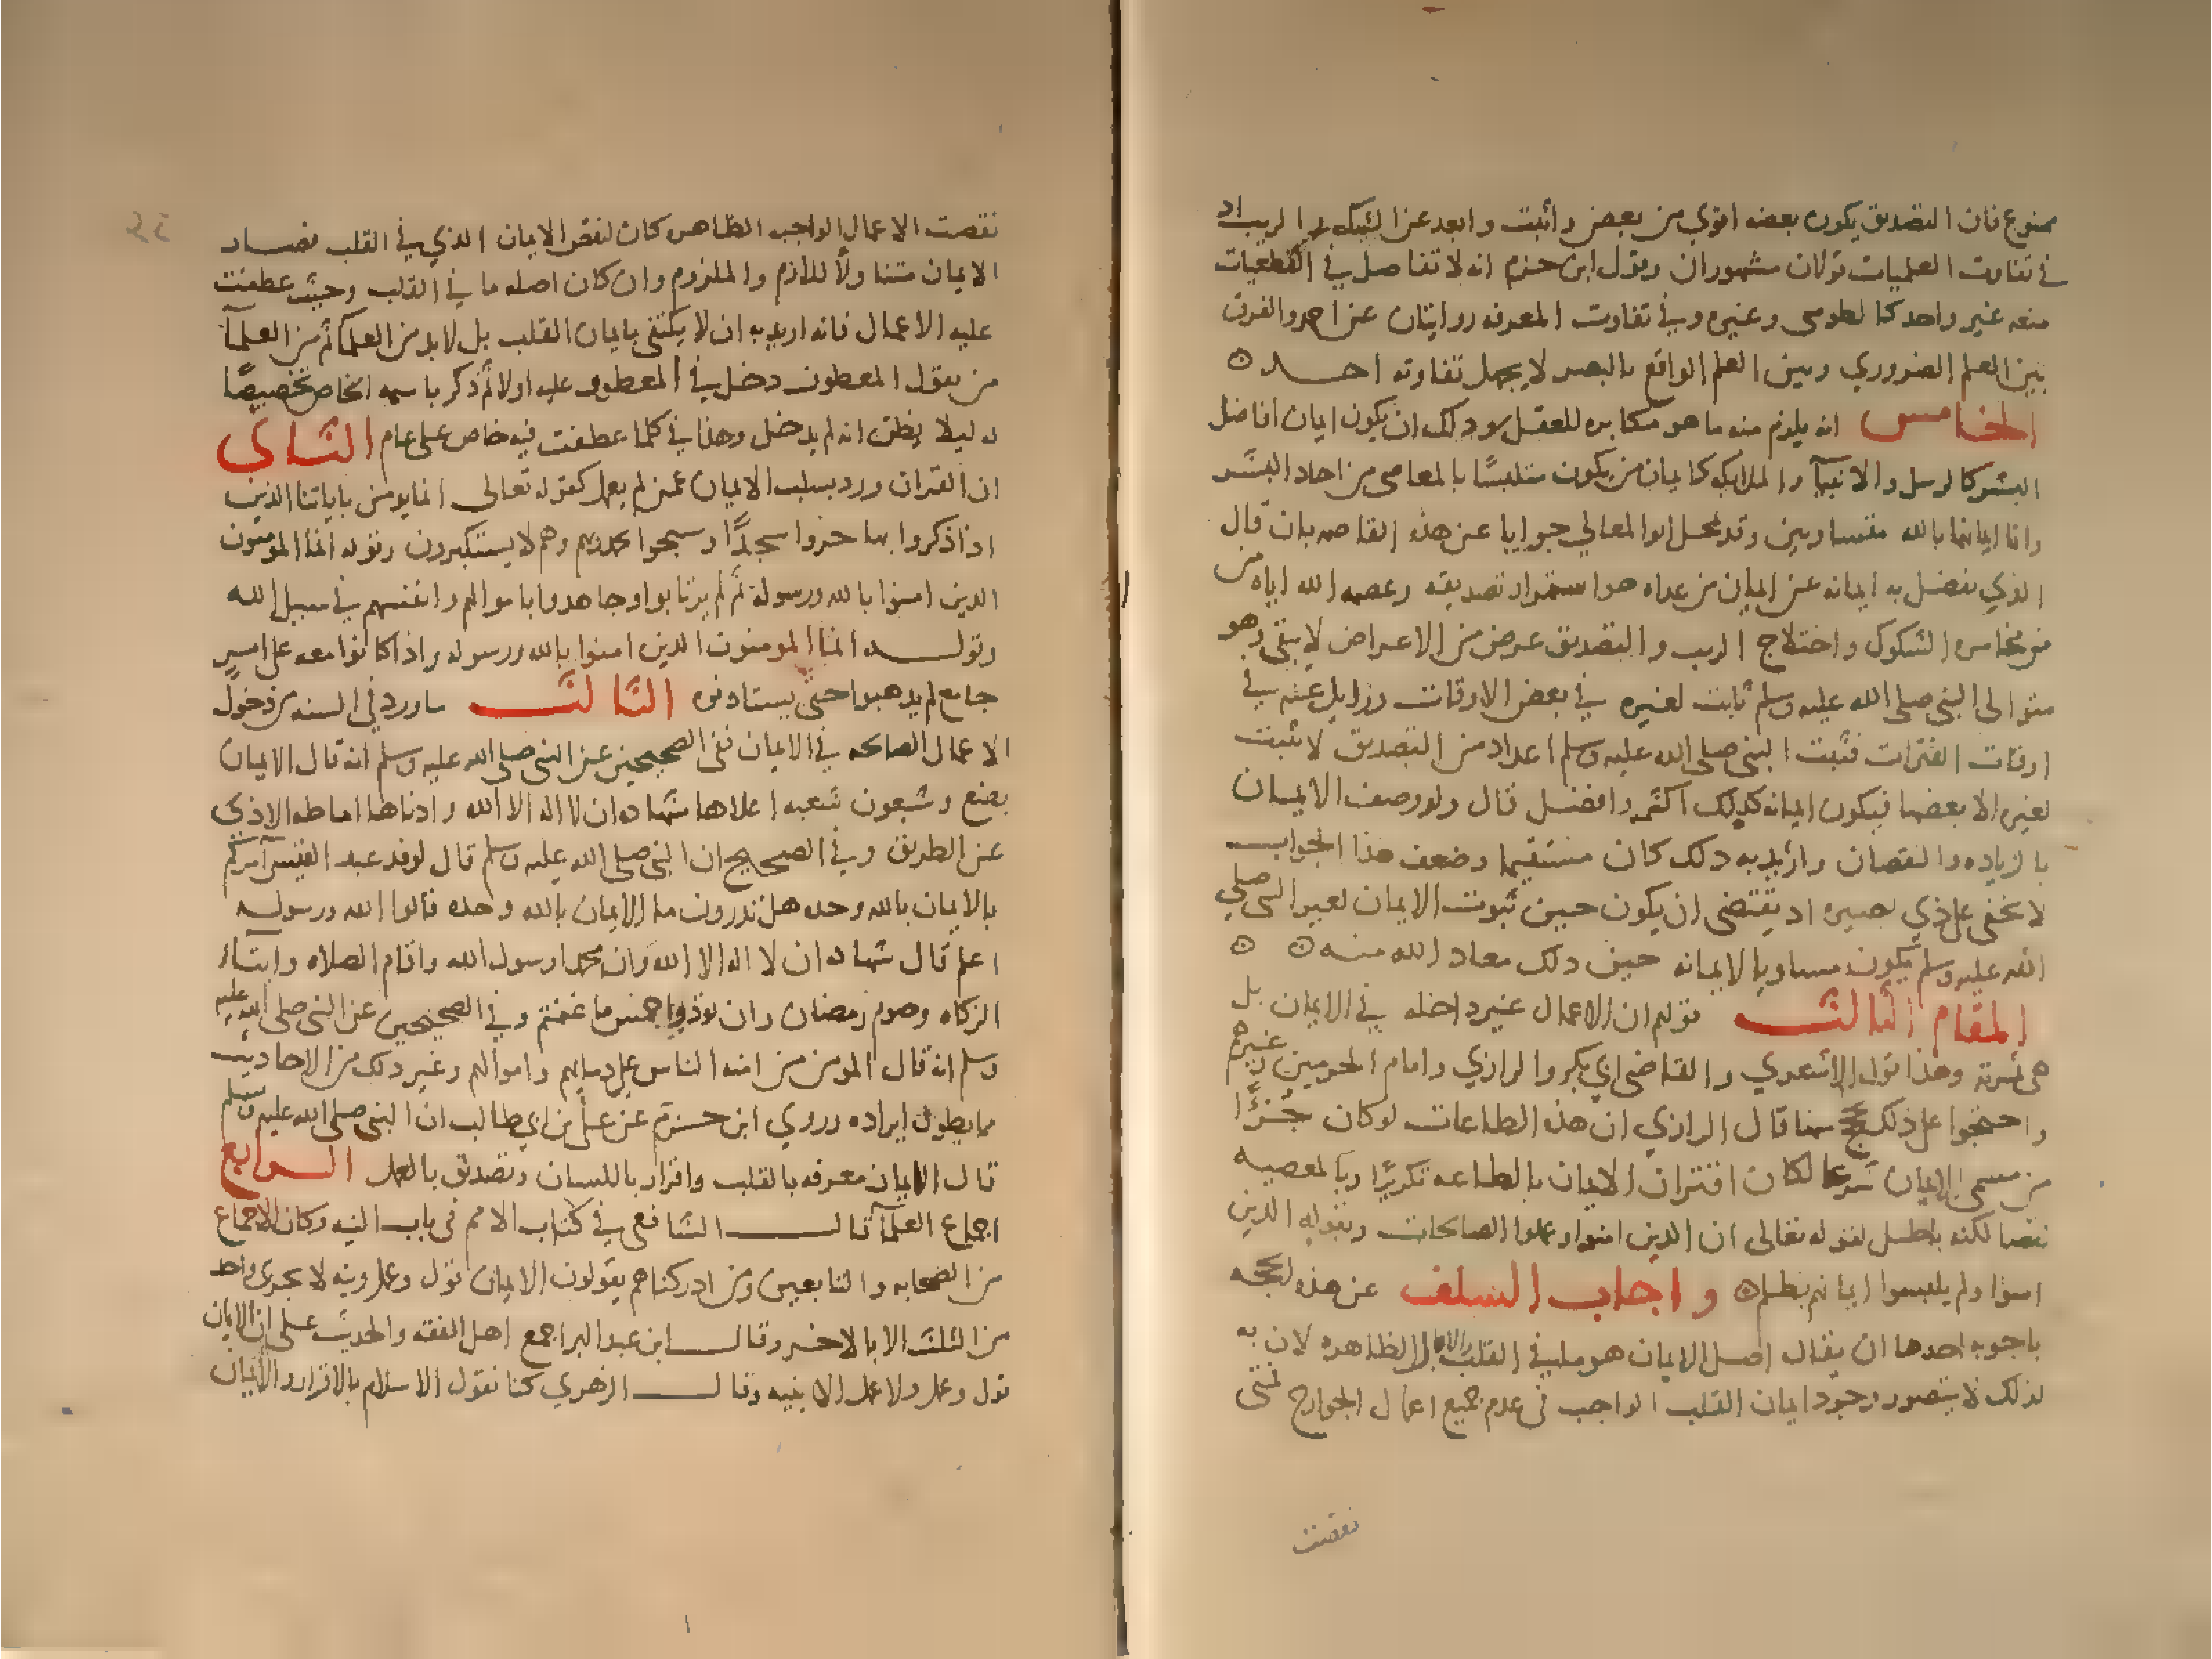 ممنوع فان التصديق يكون بعضه اقوي من بعض واثبت وابعد عن الشك والريب اد
في تفاوت العمليات قولان مشهوران وبقول ابن حزم انه لا تفاضل في القطعيات
منعه غير واحد كالطوسي وغيره وفي تفاوت المعرفه روايتان عن احمد والفرق
بين العلم الضروري وبين العلم الواقع بالبصر لا يجهل تفاوته احد
الخامس انه يلزم منه ما هو مكابره للعقل وذلك ان يكون ايمان افاضل
البشر كالرسل والانبيآ والملايكه كايمان من يكون متلبسًا بالمعاصي من احاد البشر
وانا ايمانها بالله متساويين وقد تمحل ابوا لمعالي جوابا عن هذه القاصه بان قال
الذي يفضل به ايمانه عن ايمان من عداه هو استمرار تصديقه وعصمه الله اياه من
مخامره الشكوك واختلاج الريب والتصديق عرض من الاعراض لا يبقى وهو
متوالى النبي صلى الله عليه وسلم ثابت لغيره في بعض الاوقات وزايل عنه في
اوقات الفترات فثبت للنبي صلى الله عليه وسلم اعداد من التصديق لا يثبت
لغيره الا بعضها فيكون ايمانه كذلك اكثر وافضل قال ولو وصف الايمان
بالزياده والنقصان واريد به ذلك كان مستقيما وضعف هذا الجواب
لا يخفى على ذي بصيره اد يقتضى ان يكون حين ثبوت الايمان لغير النبي صلي
الله عليه وسلم يكون مساويا لايمانه حين ذلك معاد الله منه
المقام الثالث قولهم ان الاعمال غير داخله في الايمان بل
هي ثمرته وهذا قول الاشعري والقاضي ابي بكر والرازي وامام الحرمين وغيرهم
واحتجوا على ذلك بحجج منها قال الرازي ان هذه الطاعات لو كان جزءًا
من مسمى الايمان شرعا لكان اقتران الايمان بالطاعه تكريرًا وبالمعصيه
نقضا لكنه باطل لقوله تعالى ان الذين امنوا وعملوا الصالحات وبقوله الذين
امنوا ولم يلبسوا ايمانهم بظلم واجاب السلف عن هذه الحجه
باجوبه احدها ان يقال اصل الايمان هو ما في القلب الظاهره لان به
لذلك لا يتصور وجود ايمان القلب الواجب في عدم جميع اعمال الجوارح فمتى
نقصت
نقصت الاعمال الواجب الظاهر كان لنقص الايمان الذي في القلب فصار
الايمان متناولاً للازم والملزوم وان كان اصله ما في القلب وحيث عطفت
عليه الاعمال فانه اريد به ان لا يكتفى بايمان القلب بل لابد من العمل ثم من العلمآ
من يقول المعطوف دخل في المعطوف عليه اولا ثم ذكر باسمه الخاص تخصيصًا
له ليلا يظن انه لم يدخل وهذا في كلما عطفت فيه خاص على عام الثاني
ان القران ورد بسلب الايمان عمن لم يعمل كقوله تعالى انما يومن باياتنا الذين
اذا ذكروا بها خروا سجدًا وسبحوا بحمد ربهم وهم لا يستكبرون وقوله انما المومنون
الذين امنوا بالله ورسوله ثم لم يرتابوا وجاهدوا باموالهم وانفسهم في سبيل الله
وقوله انما المومنون الذين امنوا بالله ورسوله واذا كانوا معه على امرٍ
جامع لم يدهبوا حتى يستادنوه الثالث ما ورد في السنه من دخول
الاعمال الصالحه في الايمان ففي الصحيحين عن النبي صلى الله عليه وسلم انه قال الايمان
بضع وسبعون شعبه اعلاها شهاده ان لا اله الا الله وادناها اماطه الاذي
عن الطريق وفي الصحيح ان النبي صلى الله عليه وسلم قال لوفد عبد القيس آمركم
بالايمان بالله وحده هل تدرون ما الايمان بالله وحده قالوا الله ورسوله
اعلم قال شهاده ان لا اله الا الله وان محمدا رسول الله واقام الصلاه وايتاء
الزكاه وصوم رمضان وان تودوا خمس ما غنمتم وفي الصحيحين عن النبي صلى الله عليه
وسلم انه قال المومن من امنه الناس على دمايهم واموالهم وغير ذلك من الاحاديث
مما يطول ايراده وروي ابن حزم عن علي بن ابي طالب ان النبي صلى الله عليه وسلم
قال الايمان معرفه بالقلب واقرار باللسان وتصديق بالعمل الرابع
اجماع العلمآ قال الشافعي في كتاب الام في باب النيه وكان الاجماع
من الصحابه والتابعين ومن ادركناهم يقولون الايمان قول وعمل ونيه لا يجزى واحد
من الثلث الا بالاخر وقال ابن عبد البر اجمع اهل الفقه والحديث على ان الايمان
قول وعمل ولا عمل الا بنيه وقال الزهري كنا نقول الاسلام بالاقرار والايمان